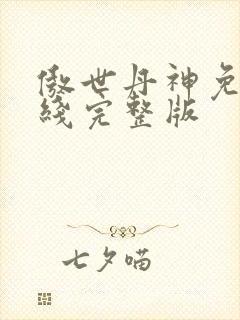 傲世丹神免
线完整版
七夕喵